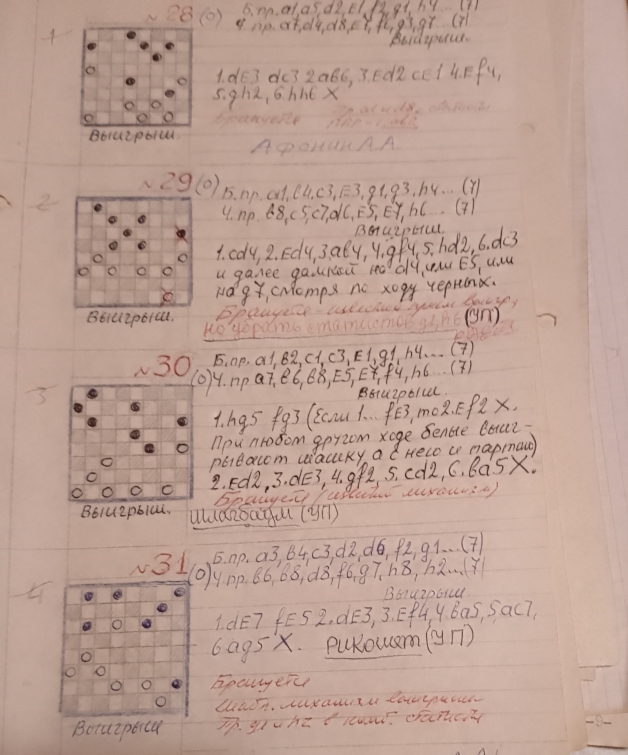 1
№ 28 (0)
Б.пр. a1, a5, d2, E1, f2, g1, h4... (7)
Ч.пр. a7, d4, d8, E7, f6, g3, g7... (7)
Выигрыш.
1.dE3 dc3 2ab6, 3.Ed2 cE1 4.Ef4,
5.gh2, 6.hh6 X
Бракуется
Афонин А.А
Выигрыш.
2
№ 29 (0)
Б.пр. a1, b4, c3, E3, g1, g3, h4... (7)
Ч.пр. b8, c5, c7, d6, E5, E7, h6... (7)
Выигрыш
1.cd4, 2.Ed4, 3.ab4, 4.gf4, 5.hd2, 6.dc3
и далее дамкой на d4, или E5, или
на g7, смотря по ходу черных.
Бракуется - известный прием выигр,
но убрать статистов g1, h6 (УП)
Выигрыш.
3
№ 30
(0)
Б.пр. a1, b2, c1, c3, E1, g1, h4... (7)
Ч.пр a7, b6, b8, E5, E7, f4, h6... (7)
Выигрыш
1.hg5 fg3 (Если 1... fE3, то 2.Ef2 X.
При любом другом ходе белые выиг-
рывают шашку, а с нею и партию)
2.Ed2, 3.dE3, 4.gf2, 5.cd2, 6.ba5 X.
Бракуется (механизм)
Шлагбаум (УП)
Выигрыш.
4
№ 31
(0)
Б.пр. a3, b4, c3, d2, d6, f2, g1...(7)
Ч.пр. b6, b8, d8, f6, g7, h8, h2...(7)
Выигрыш.
1.dE7 fE5 2.dE3, 3.Ef4, 4.ba5, 5ac7,
6ag5 X. Рикошет (УП)
Бракуется
механизм выигрыша
Выигрыш